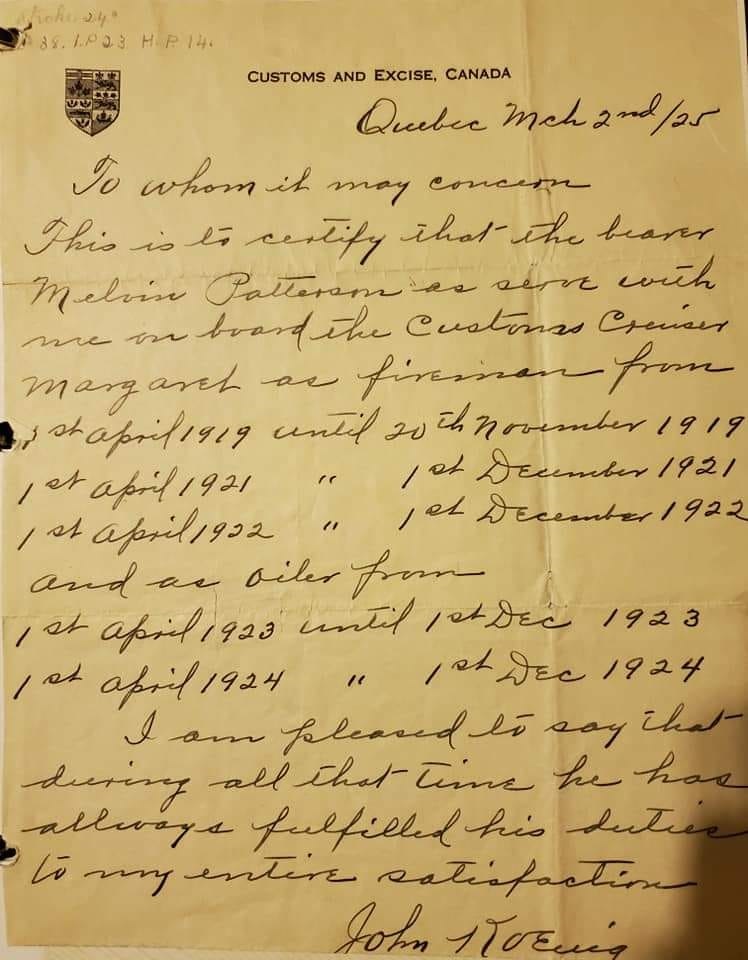 stroke 24"
38. I.P 23 H.P. 14.
CUSTOMS AND EXCISE, CANADA
Quebec Mch 2nd/25
To whom it may concern
This is to certify that the bearer
Melvin Patterson as serve with
me on board the Customs Cruiser
Margaret as fireman from
1st April 1919 until 20th November 1919
1st April 1921 " 1st December 1921
1st April 1922 " 1st December 1922
and as oiler from
1st April 1923 until 1st Dec 1923
1st April 1924 " 1st Dec 1924
I am pleased to say that
during all that time he has
allways fulfilled his duties
to my entire satisfaction
John Koenig